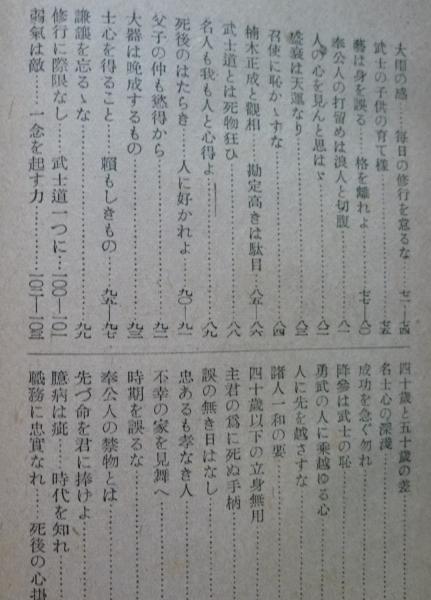 大雨の感……毎日の修行を怠るな……七一―七四
武士の子供の育て樣……七五
藝は身を誤る……格を離れよ……七七―八〇
奉公人の打留めは浪人と切腹……八一
人の心を見んと思はゞ……八二
盛衰は天運なり……八三
召使に恥かゝすな……八四
楠木正成と觀相……勘定高きは駄目……八五―八六
武士道とは死物狂ひ……八八
名人も我も人と心得よ……八九
死後のはたらき……人に好かれよ……九〇―九一
父子の仲も慾得から……九二
大器は晩成するもの……九三
士心を得ること……賴もしきもの……九五―九七
謙讓を忘るゝな……九九
修行に際限なし……武士道一つに……一〇〇―一〇一
弱氣は敵……一念を起す力……一〇二―一〇三
四十歲と五十歲の差
名士心の深淺
成功を急ぐ勿れ
降參は武士の恥
勇武の人に乘越ゆる心
人に先を越さすな
諸人一和の要
四十歲以下の立身無用
主君の爲に死ぬ手柄
誤の無き日はなし
忠あるも孝なき人
不幸の家を見舞へ
時期を誤るな
奉公人の禁物とは
先づ命を君に捧げよ
臆病は疵……時代を知れ
職務に忠實なれ……死後の心掛